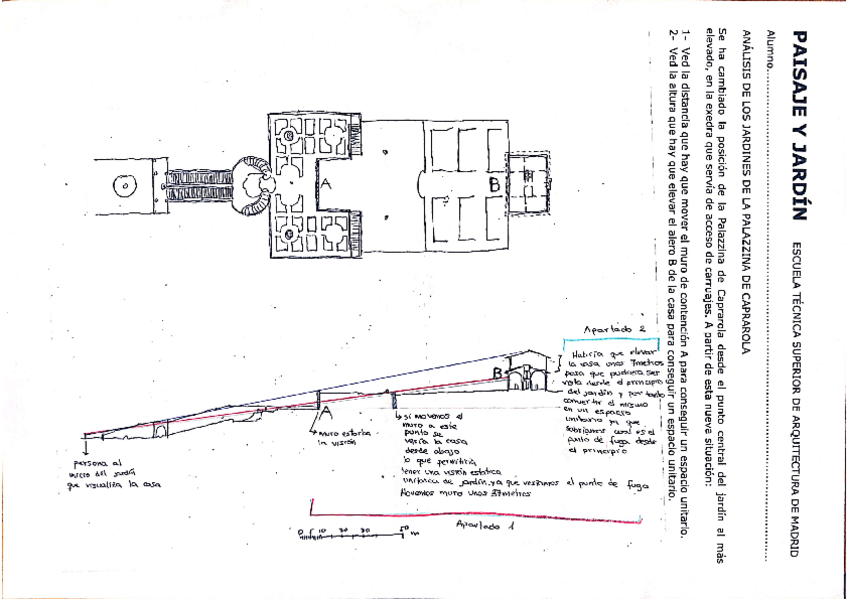 PAISAJE Y JARDÍN ESCUELA TÉCNICA SUPERIOR DE ARQUITECTURA DE MADRID
Alumno.......................................................................
ANÁLISIS DE LOS JARDINES DE LA PALAZZINA DE CAPRAROLA
Se ha cambiado la posición de la Palazzina de Caprarola desde el punto central del jardín al más
elevado, en la exedra que servía de acceso de carruajes. A partir de esta nueva situación:
1- Ved la distancia que hay que mover el muro de contención A para conseguir un espacio unitario.
2- Ved la altura que hay que elevar el alero B de la casa para conseguir un espacio unitario.
A
B
Apartado 2
Habría que elevar
la casa unos 7metros
para que pudiera ser
vista desde el principio
del jardín y por tanto
convertir el mismo
en un espacio
unitario ya que
sabríamos cual es el
punto de fuga desde
el principio
B
A
muro estorba
la visión
si movemos el
muro a este
punto se
vería la casa
desde abajo
lo que permitiría
tener una visión estática
unitaria de jardín, ya que veríamos el punto de fuga
Movemos muro unos 37metros
persona al
inicio del jardín
que visualiza la casa
Apartado 1
0 5 10 20 30 50 m